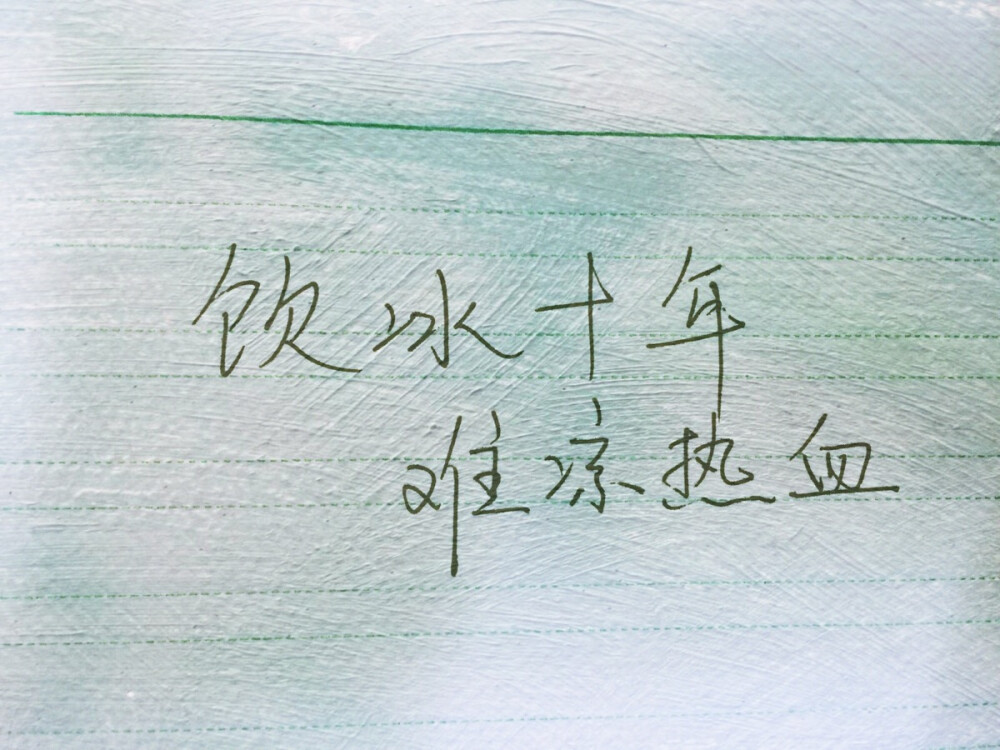 饮冰十年
难凉热血